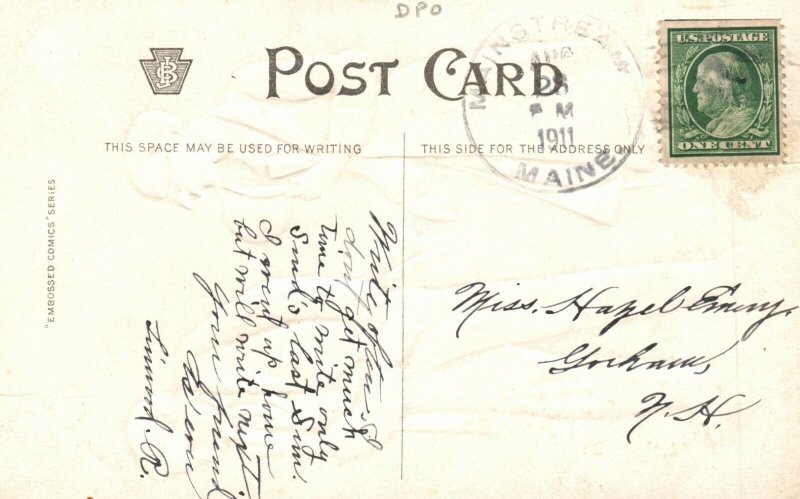 DPO
POST CARD
JSB
THIS SPACE MAY BE USED FOR WRITING
THIS SIDE FOR THE ADDRESS ONLY
"EMBOSSED COMICS" SERIES
MAINSTREAM
AUG
28
PM
1911
MAINE
U.S. POSTAGE
ONE CENT
Write often I
don't get much
Time to write only
Sunds last Sun.
I went up home
but will write next.
Your friend
Linwood. R.
Miss. Hazel Emery,
Gorham,
N. H.